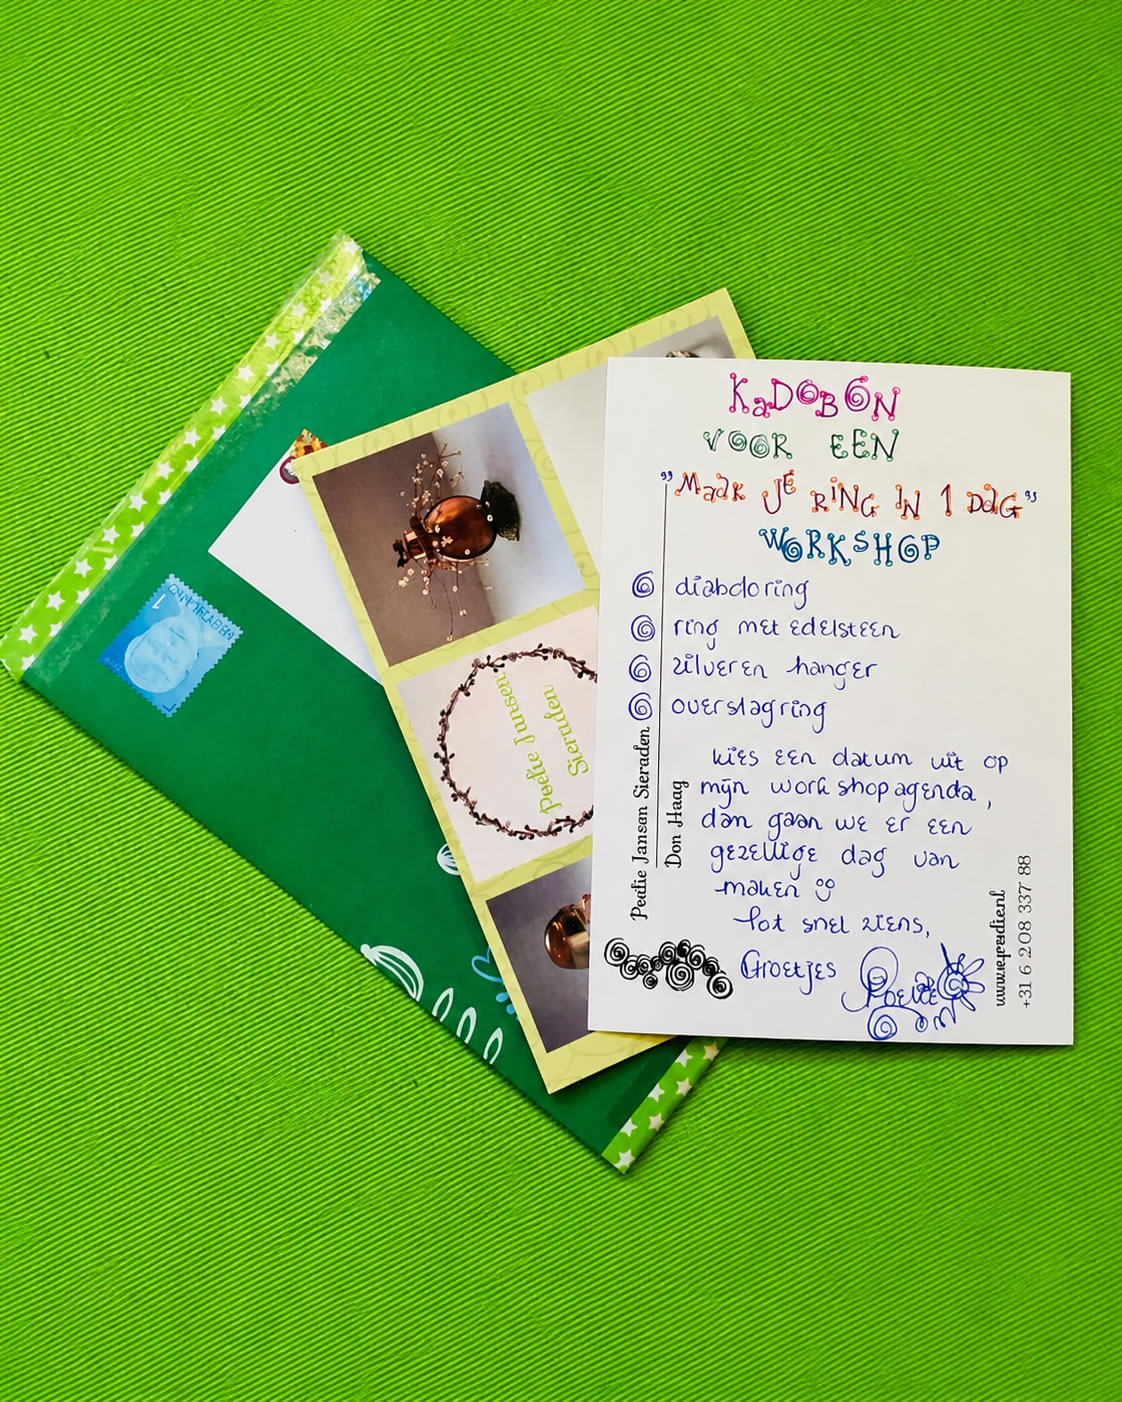 KaDOBON
VOOR EEN
"Maak JE RING IN 1 DaG"
WORKSHOP
diabcloring
ring met edelsteen
zilveren hanger
overslagring
kies een datum uit op
mijn workshopagenda,
dan gaan we er een
gezellige dag van
maken
Tot snel ziens,
Groetjes
Jansen Sieraden
Don Haag
+31 6 208 337 88
Jansen
Sieraden
1